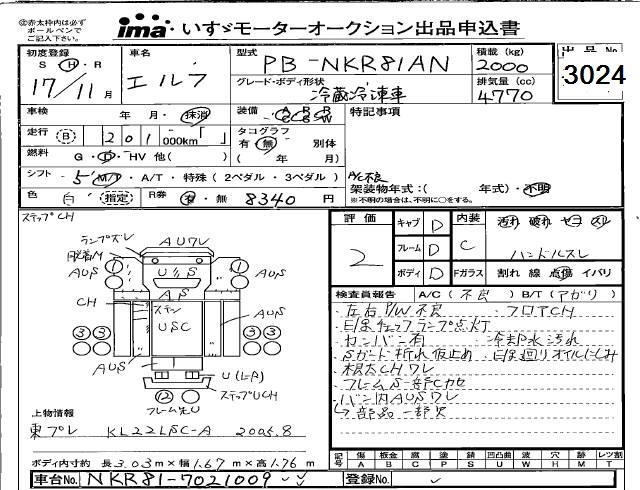 ㊟赤太枠内は必ず
ボールペンで
ご記入下さい。
ima いすゞモーターオークション出品申込書
初度登録 車名 型式 PB-NKR81AN 積載 (kg) 2000 出品No. 3024
S H R 17/11月 エルフ グレード・ボディ形状 冷蔵冷凍車 排気量 (cc) 4770
車検 年 月・抹消 装備 AC PS RG SW AW 特記事項
走行 B 201 000km「 」 タコグラフ 有・無 別体
燃料 G・D・HV 他( ) ( 年 月)
シフト 5 M/T・A/T・特殊 (2ペダル・3ペダル) A/C不良
架装物年式:( 年式)・不明
※不明の場合は、不明に○をする。
色 白 指定 R券 有・無 8340円
ステップCH
評価 2 キャブ D 内装 C 汚れ 破れ ヤコ スレ
フレーム D ハンドルスレ
ボディ D Fガラス 割れ 線 点傷 イバリ
ランプズレ AUワレ
脱着M
AUS
AUS
CH
AUS
AUS
U(L=R)
ステップUCH
フレーム先U
検査員報告 A/C (不良) B/T (アガリ)
・左右P/W不良 ・フロアCH
・日除チェックランプ点灯
・カンバン有 ・冷却水汚れ
・Sガード折れ仮止め
・根太CHワレ
・フレームS一部Cカセ
・バン内AUSワレ
↳部品一部欠
上物情報
東プレ KL22LSC-A 2005.8
記号 傷 A 板金 B 腐 C 塗 P 錆 S 凹凸曲 U 波 W 穴 H 脱 M レンズ割 T
ボディ内寸約 長3.03m×幅1.67m×高1.76m
車台No. NKR81-7021009 登録No.